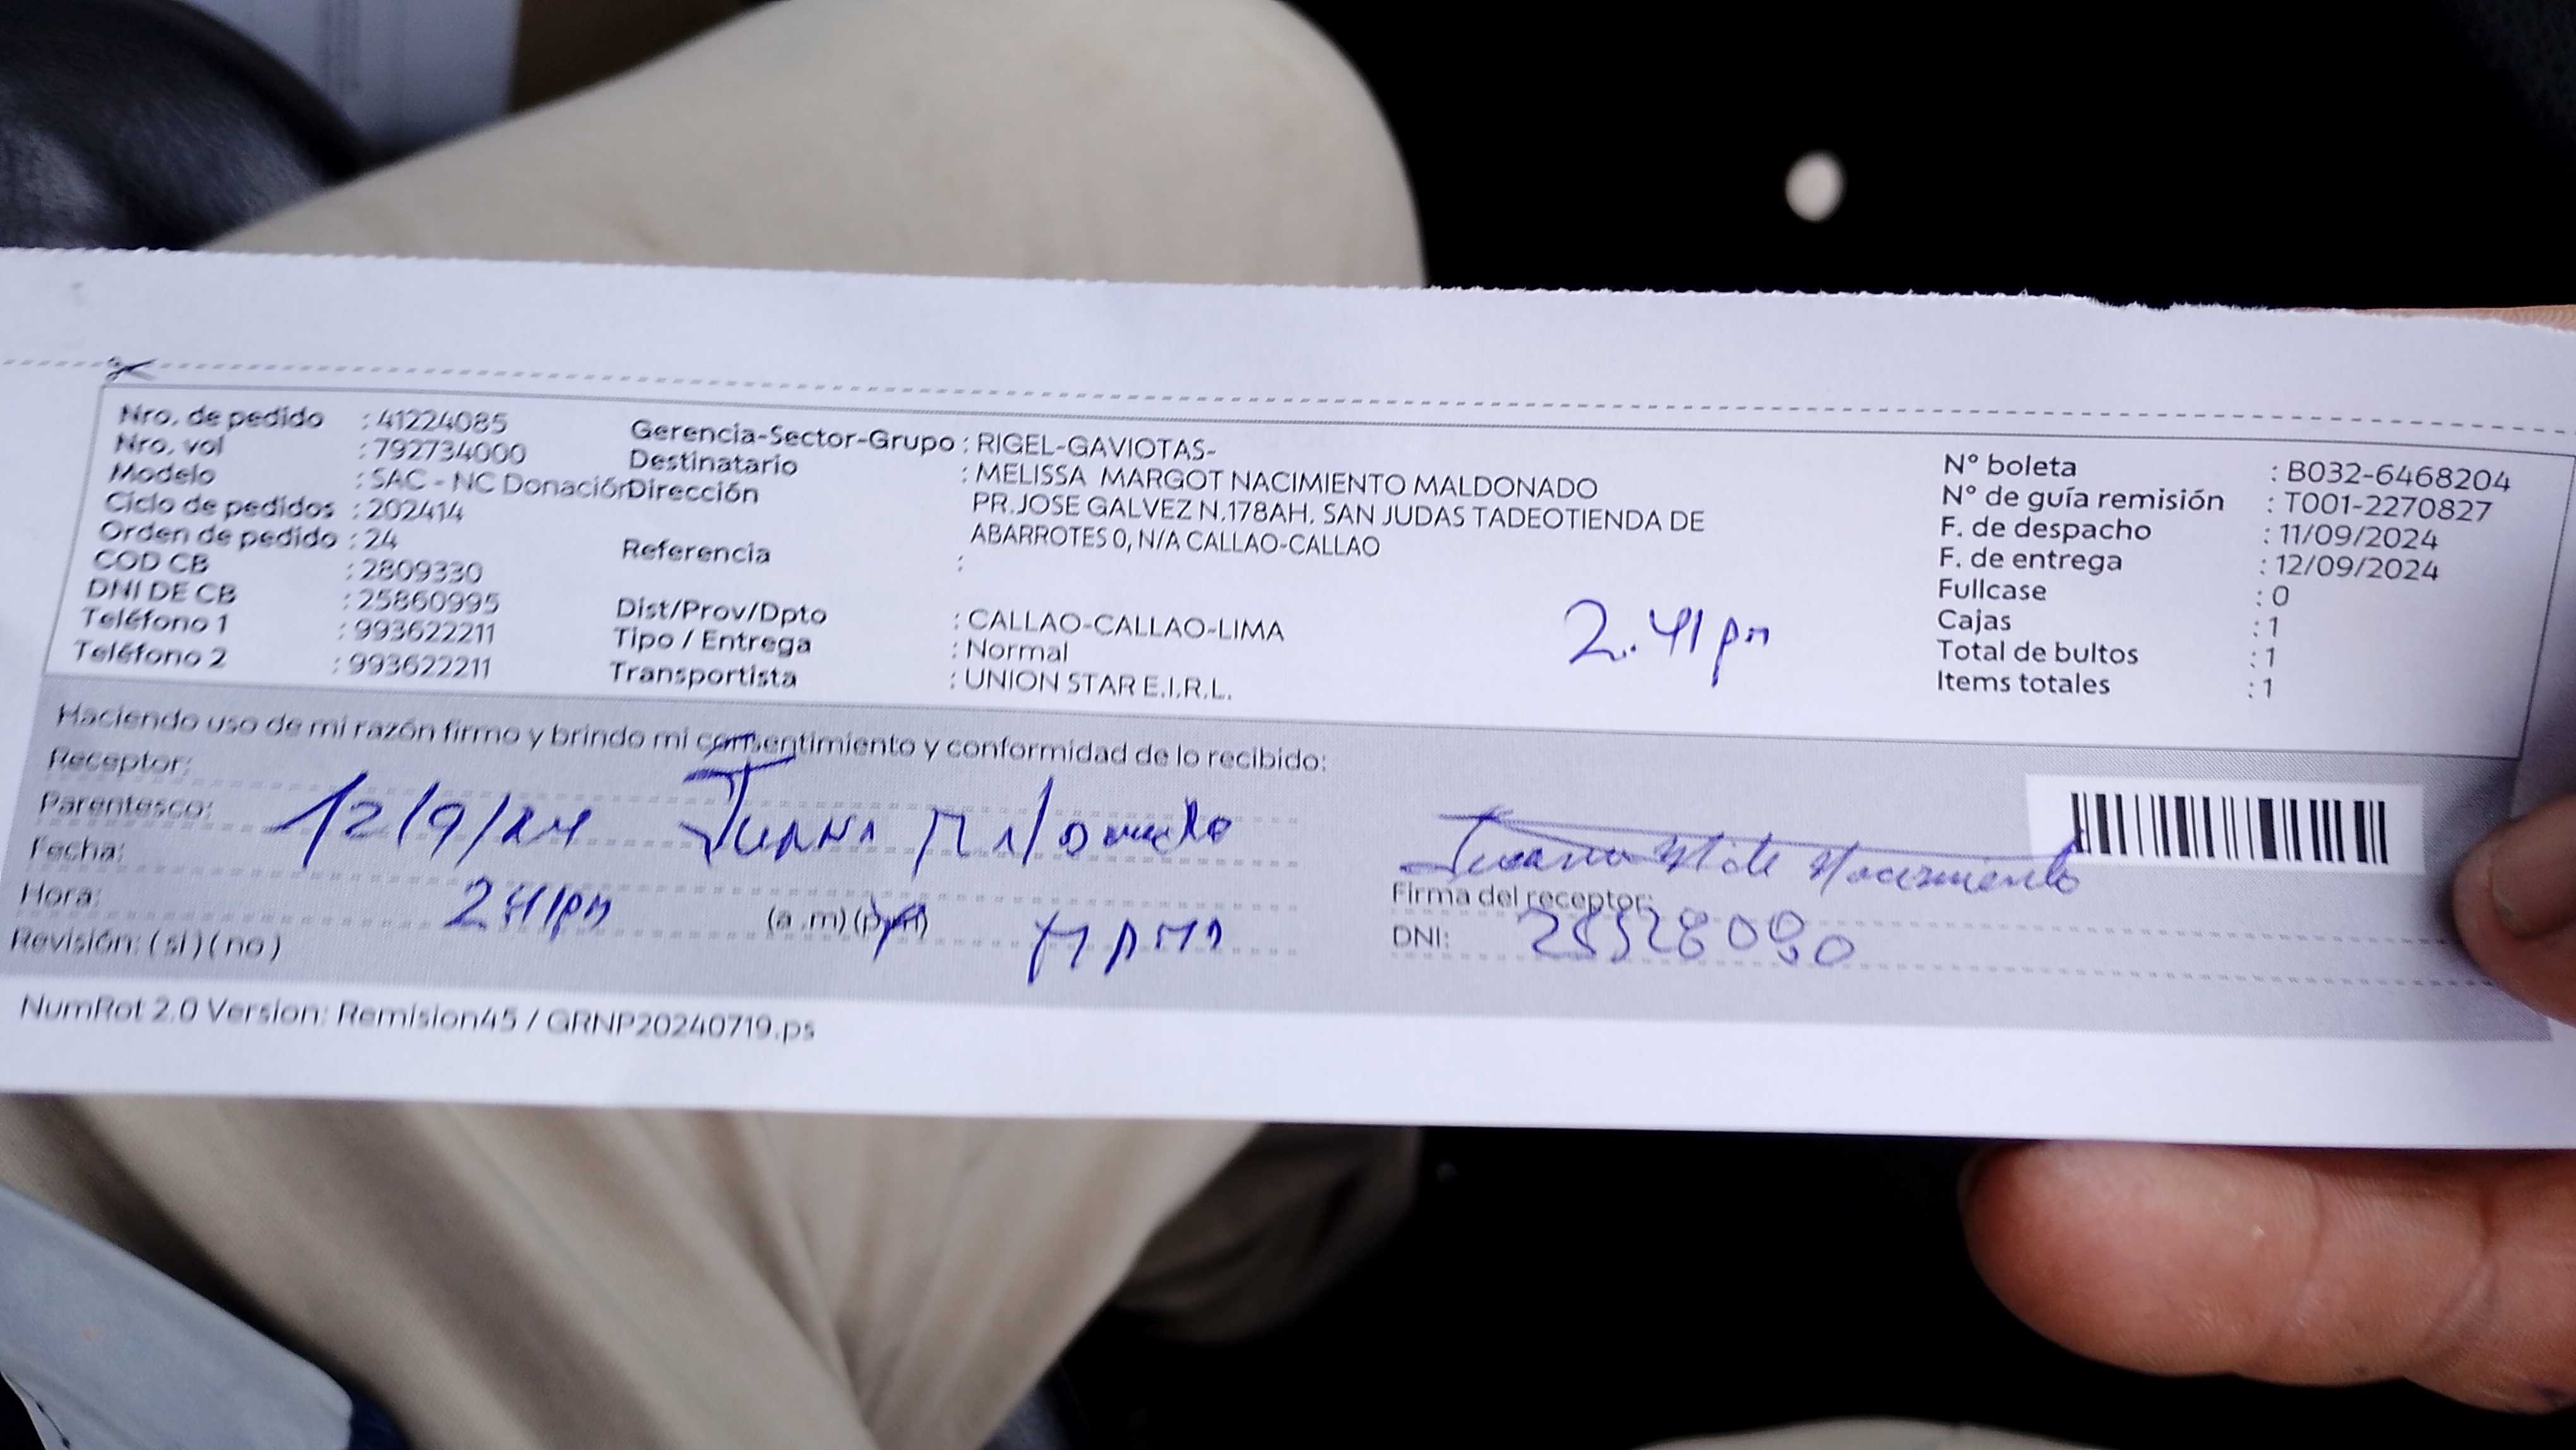 Nro. de pedido : 41224085
Nro. vol : 792734000
Modelo : SAC - NC Donación
Ciclo de pedidos : 202414
Orden de pedido : 24
COD CB : 2809330
DNI DE CB : 25860995
Teléfono 1 : 993622211
Teléfono 2 : 993622211
Gerencia-Sector-Grupo : RIGEL-GAVIOTAS-
Destinatario : MELISSA MARGOT NACIMIENTO MALDONADO
Dirección PR.JOSE GALVEZ N.178AH. SAN JUDAS TADEOTIENDA DE
ABARROTES 0, N/A CALLAO-CALLAO
Referencia :
Dist/Prov/Dpto : CALLAO-CALLAO-LIMA
Tipo / Entrega : Normal
Transportista : UNION STAR E.I.R.L.
2.41 pm
N° boleta : B032-6468204
N° de guía remisión : T001-2270827
F. de despacho : 11/09/2024
F. de entrega : 12/09/2024
Fullcase : 0
Cajas : 1
Total de bultos : 1
Items totales : 1
Haciendo uso de mi razón firmo y brindo mi consentimiento y conformidad de lo recibido:
Receptor:
Parentesco:
12/9/24 Juana
Fecha:
Hora: 241pm (a .m) (p.m)
Revisión: ( si ) ( no )
Juana Nacimiento
Firma del receptor:
DNI:
NumRot 2.0 Version: Remision45 / GRNP20240719.ps